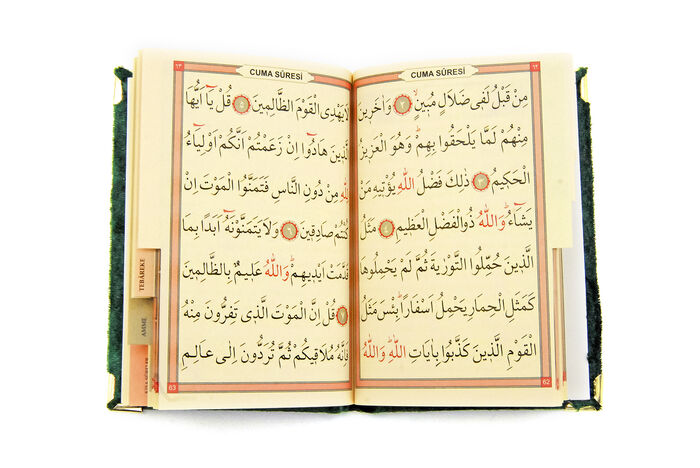 ١٢
CUMA SÛRESİ
مِنْ قَبْلُ لَفٖى ضَلَالٍ مُبٖينٍۙ ﴿٢﴾ وَاٰخَرٖينَ
مِنْهُمْ لَمَّا يَلْحَقُوا بِهِمْؕ وَهُوَ الْعَزٖيزُ
الْحَكٖيمُ ﴿٣﴾ ذٰلِكَ فَضْلُ اللّٰهِ يُؤْتٖيهِ مَنْ
يَشَٓاءُؕ وَاللّٰهُ ذُوالْفَضْلِ الْعَظٖيمِ ﴿٤﴾ مَثَلُ
الَّذٖينَ حُمِّلُوا التَّوْرٰيةَ ثُمَّ لَمْ يَحْمِلُوهَا
كَمَثَلِ الْحِمَارِ يَحْمِلُ اَسْفَارًاؕ بِئْسَ مَثَلُ
الْقَوْمِ الَّذٖينَ كَذَّبُوا بِاٰيَاتِ اللّٰهِؕ وَاللّٰهُ
62
١٣
CUMA SÛRESİ
لَا يَهْدِى الْقَوْمَ الظَّالِمٖينَ ﴿٥﴾ قُلْ يَٓا اَيُّهَا
الَّذٖينَ هَادُٓوا اِنْ زَعَمْتُمْ اَنَّكُمْ اَوْلِيَٓاءُ
لِلّٰهِ مِنْ دُونِ النَّاسِ فَتَمَنَّوُا الْمَوْتَ اِنْ
كُنْتُمْ صَادِقٖينَ ﴿٦﴾ وَلَا يَتَمَنَّوْنَهُٓ اَبَدًا بِمَا
قَدَّمَتْ اَيْدٖيهِمْؕ وَاللّٰهُ عَلٖيمٌ بِالظَّالِمٖينَ
﴿٧﴾ قُلْ اِنَّ الْمَوْتَ الَّذٖى تَفِرُّونَ مِنْهُ
فَاِنَّهُ مُلَاقٖيكُمْ ثُمَّ تُرَدُّونَ اِلٰى عَالِمِ
63
TEBÂREKE
AMME